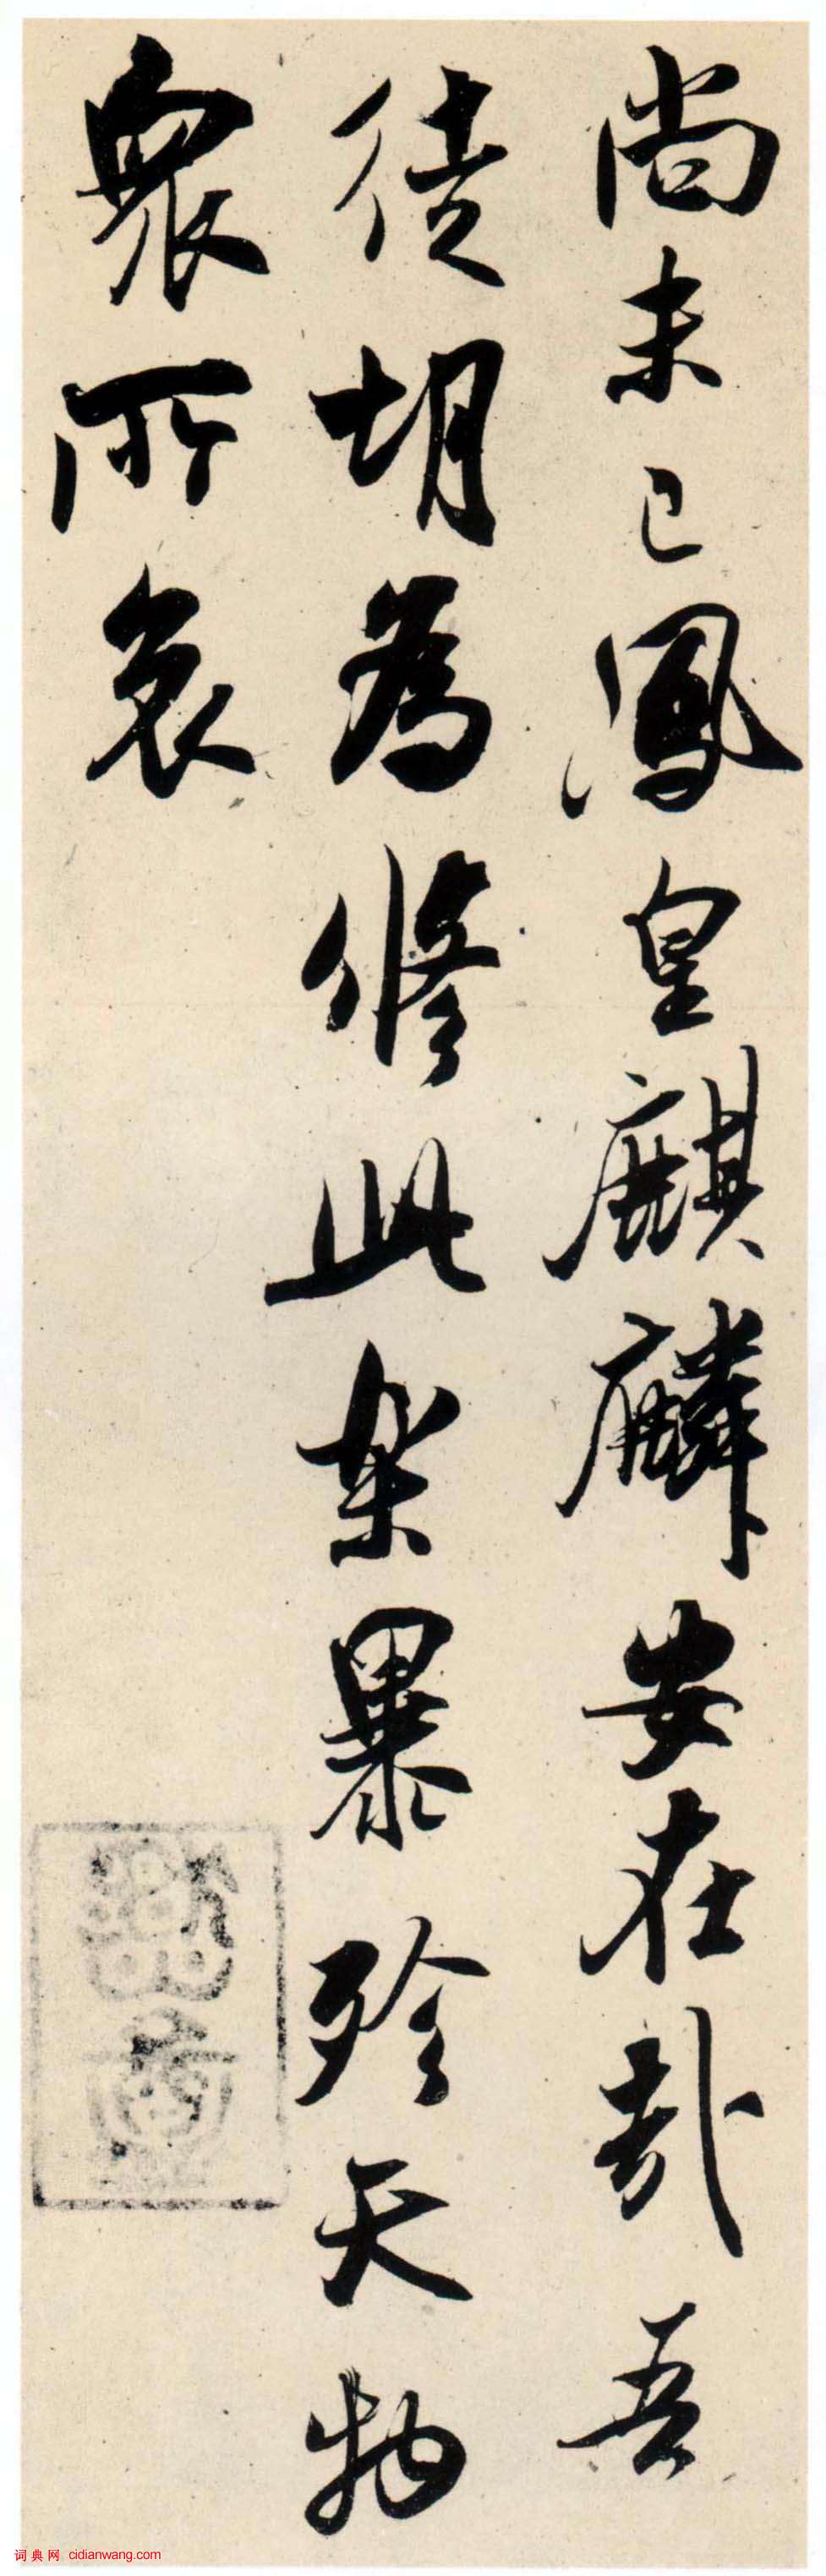 尚未已鳳皇麒麟安在哉吾
徒胡為脩此樂暴殄天物
眾所哀
词典网 cidianwang.com